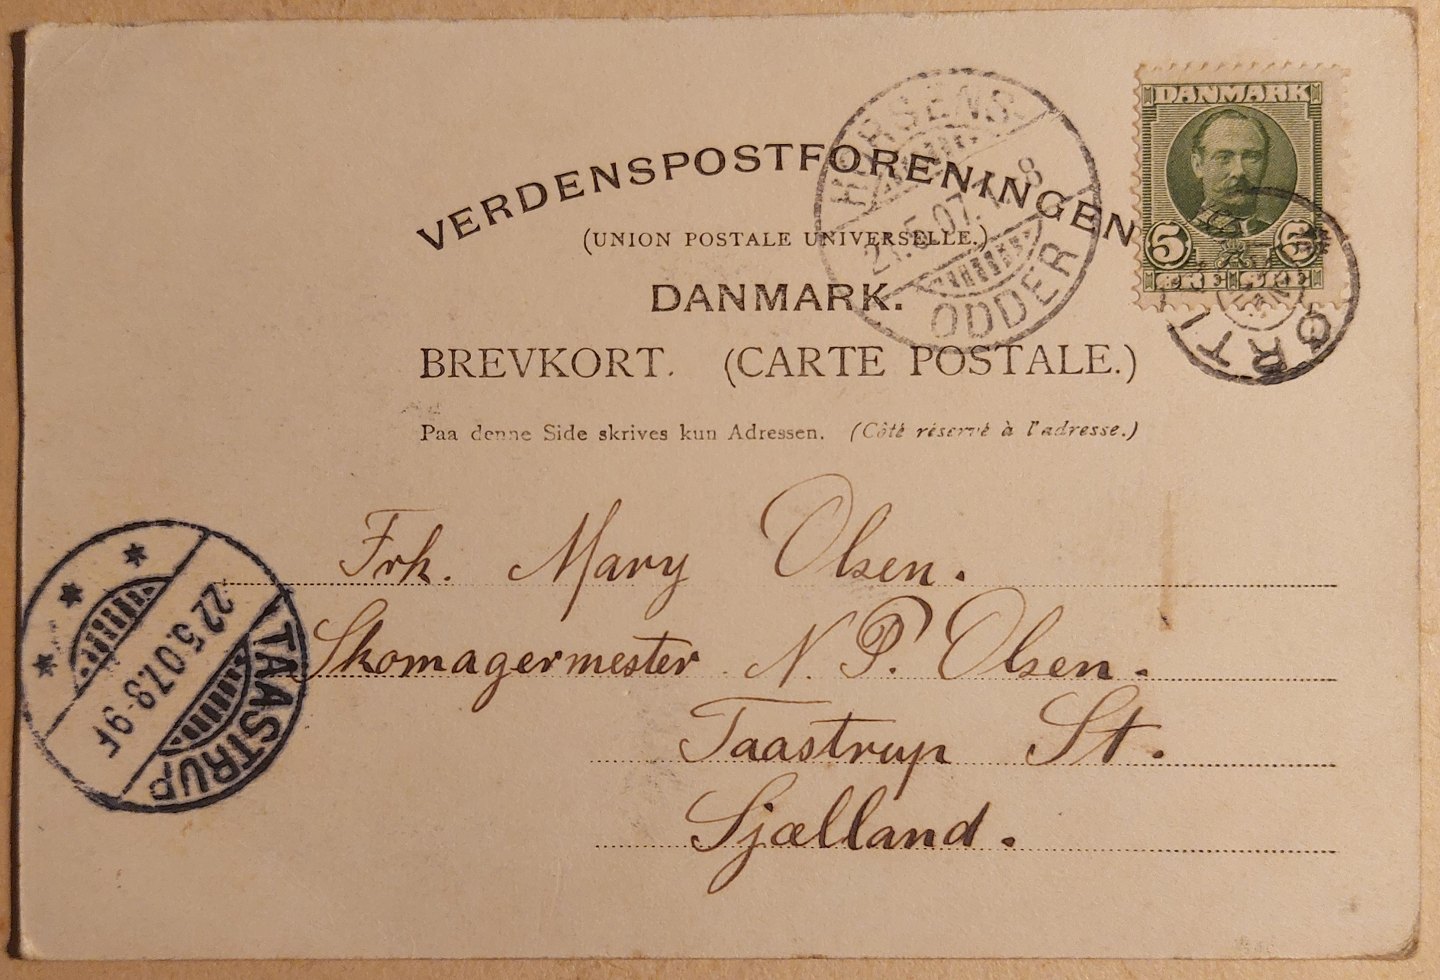 DANMARK
5 5
ØRE ØRE
HORSENS
21.5.07. 8
ODDER
VERDENSPOSTFORENINGEN
(UNION POSTALE UNIVERSELLE.)
DANMARK.
BREVKORT. (CARTE POSTALE.)
Paa denne Side skrives kun Adressen. (Côté réservé à l'adresse.)
Frk. Mary Olsen.
Skomagermester N. P. Olsen.
Taastrup St.
Sjælland.
TAASTRUP
22.5.07.8-9F